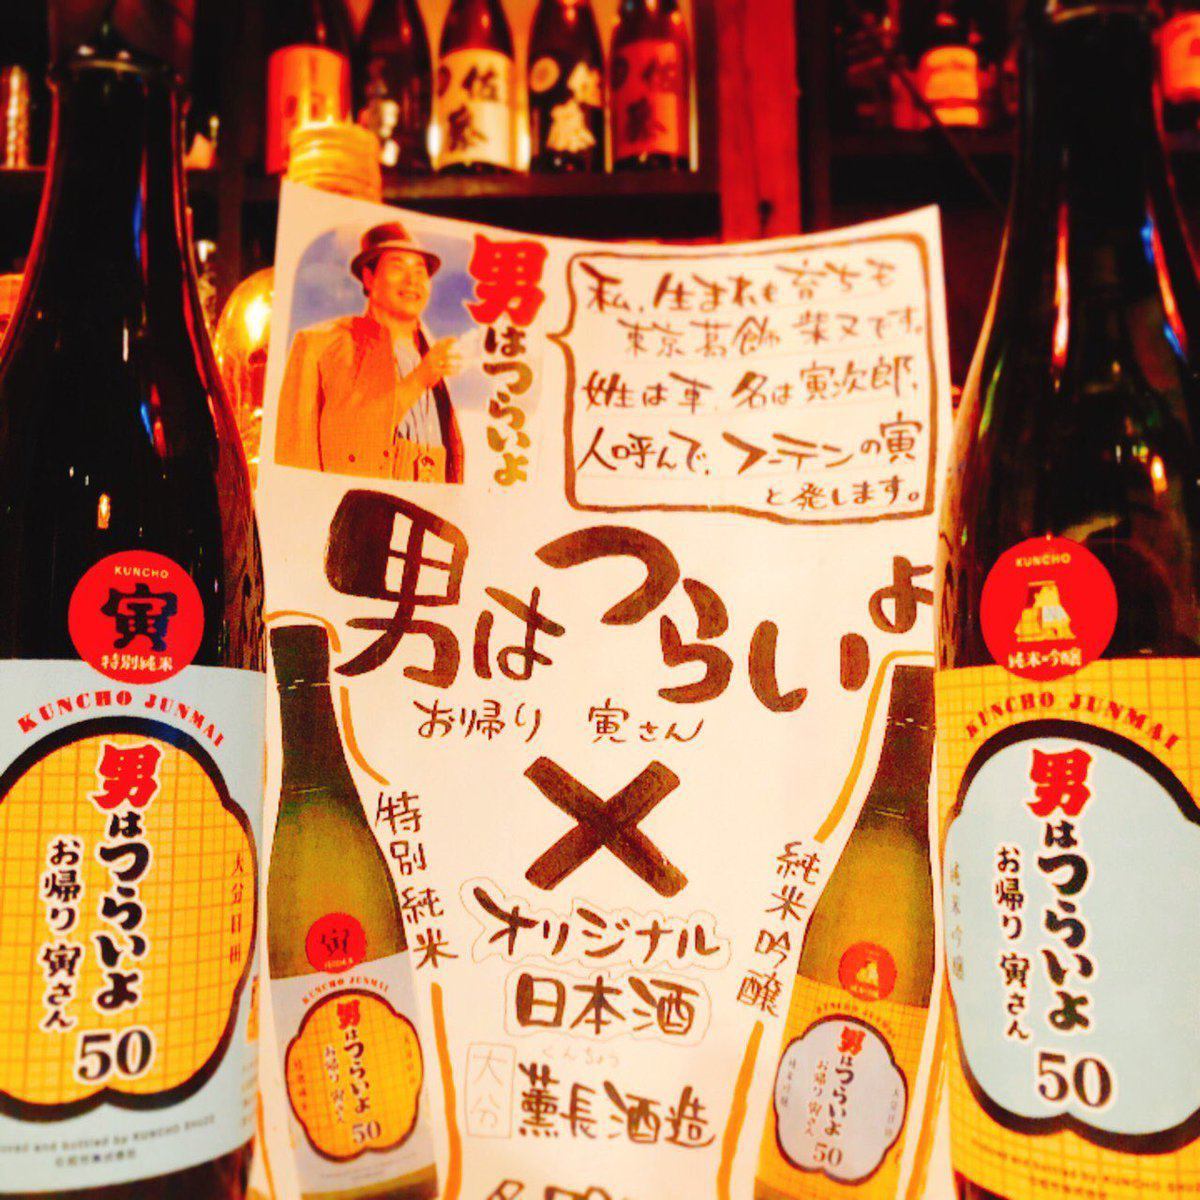 佐藤
佐藤
男はつらいよ
私、生まれも育ちも
東京葛飾 柴又です。
姓は車、名は寅次郎、
人呼んで、フーテンの寅
と発します。
男はつらいよ
お帰り 寅さん
×
オリジナル
日本酒
くんちょう
大分
薫長酒造
特別純米
純米吟醸
KUNCHO
寅
特別純米
KUNCHO JUNMAI
男はつらいよ
お帰り 寅さん
50
大分日田
brewed and bottled by KUNCHO SHUZO
KUNCHO
純米吟醸
KUNCHO JUNMAI
男はつらいよ
お帰り 寅さん
50
純米吟醸
寅
KUNCHO JUNMAI
男はつらいよ
お帰り 寅さん
50
KUNCHO JUNMAI
男はつらいよ
お帰り 寅さん
50